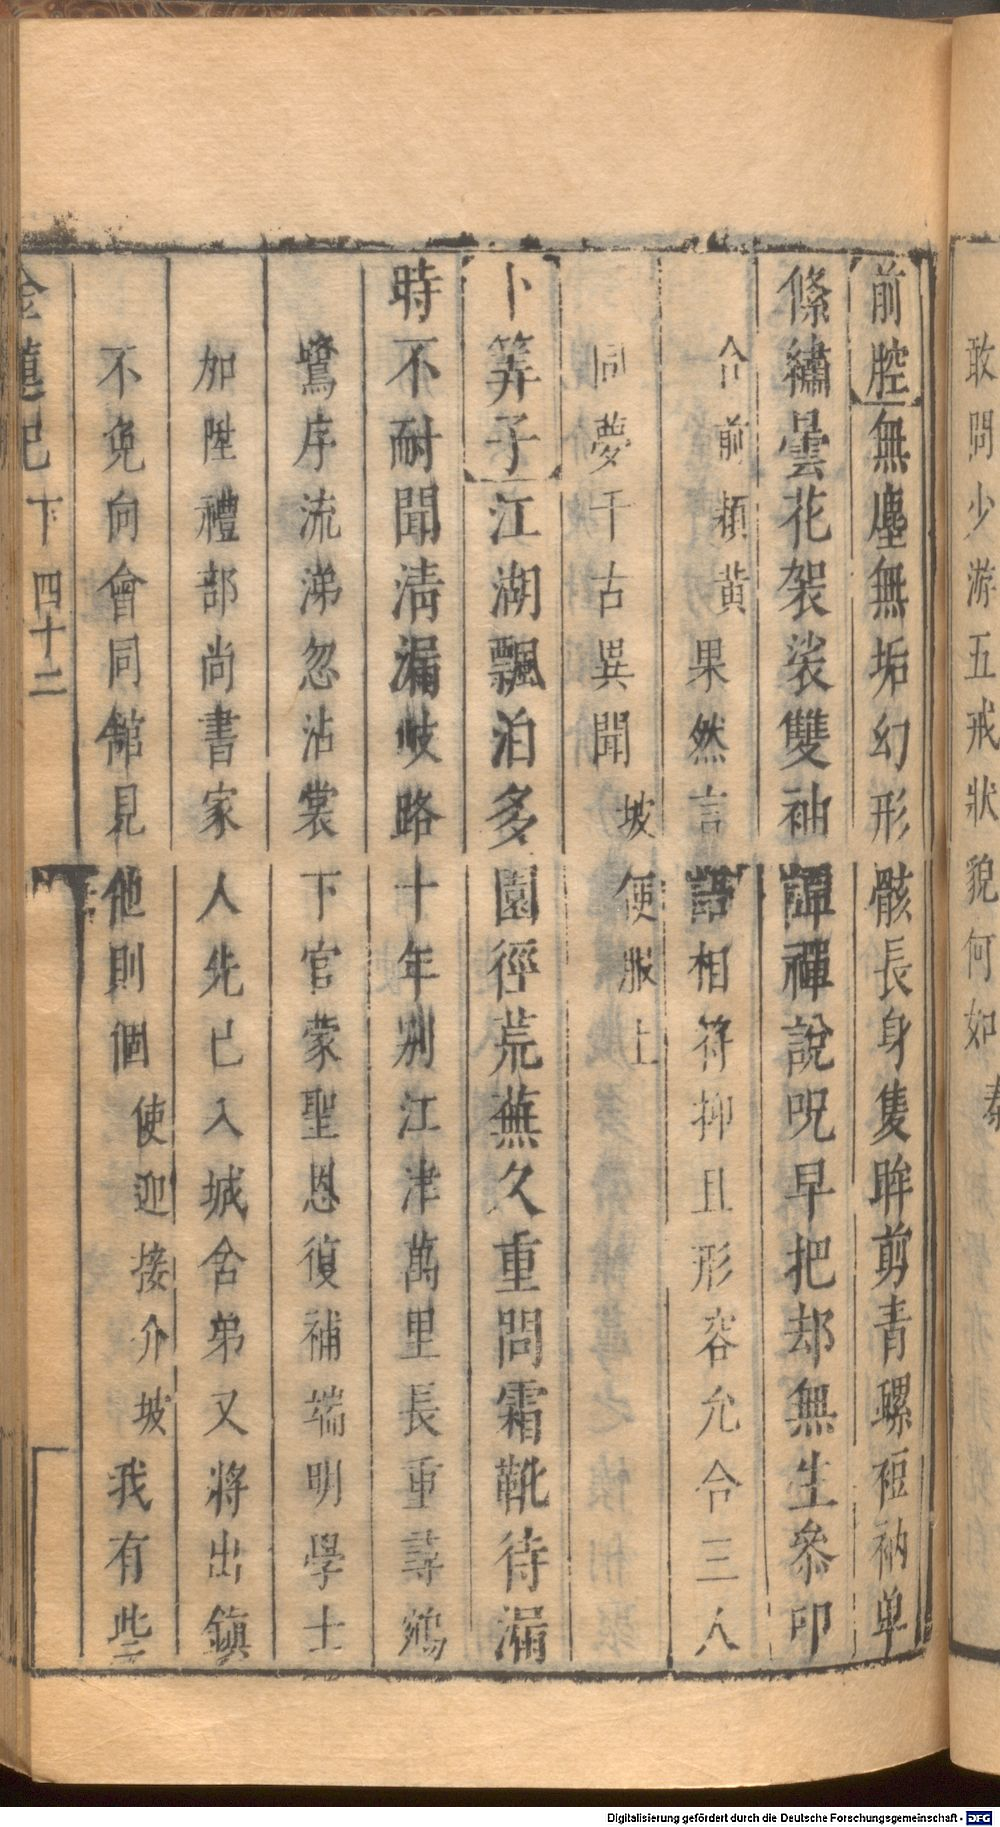 敢問少游五戒狀貌何如 秦
前腔無塵無垢幻形骸長身隻眸剪青螺短衲单
絛繡曇花袈裟雙袖譚禪說呪早把却無生參印
合前 頳黄 果然言語相符抑且形容允合三人
同夢千古異聞 坡便服上
卜筭子江湖飄泊多園徑荒蕪久重問霜靴待漏
時不耐聞清漏岐路十年别江津萬里長重尋鵷
鷺序流涕忽沾裳下官蒙聖恩復補端明學士
加陞禮部尚書家人先已入城舍弟又將出鎮
不免向會同館見他則個 使迎接介 坡 我有些
金蓮記 下 四十二
Digitalisierung gefördert durch die Deutsche Forschungsgemeinschaft - DFG